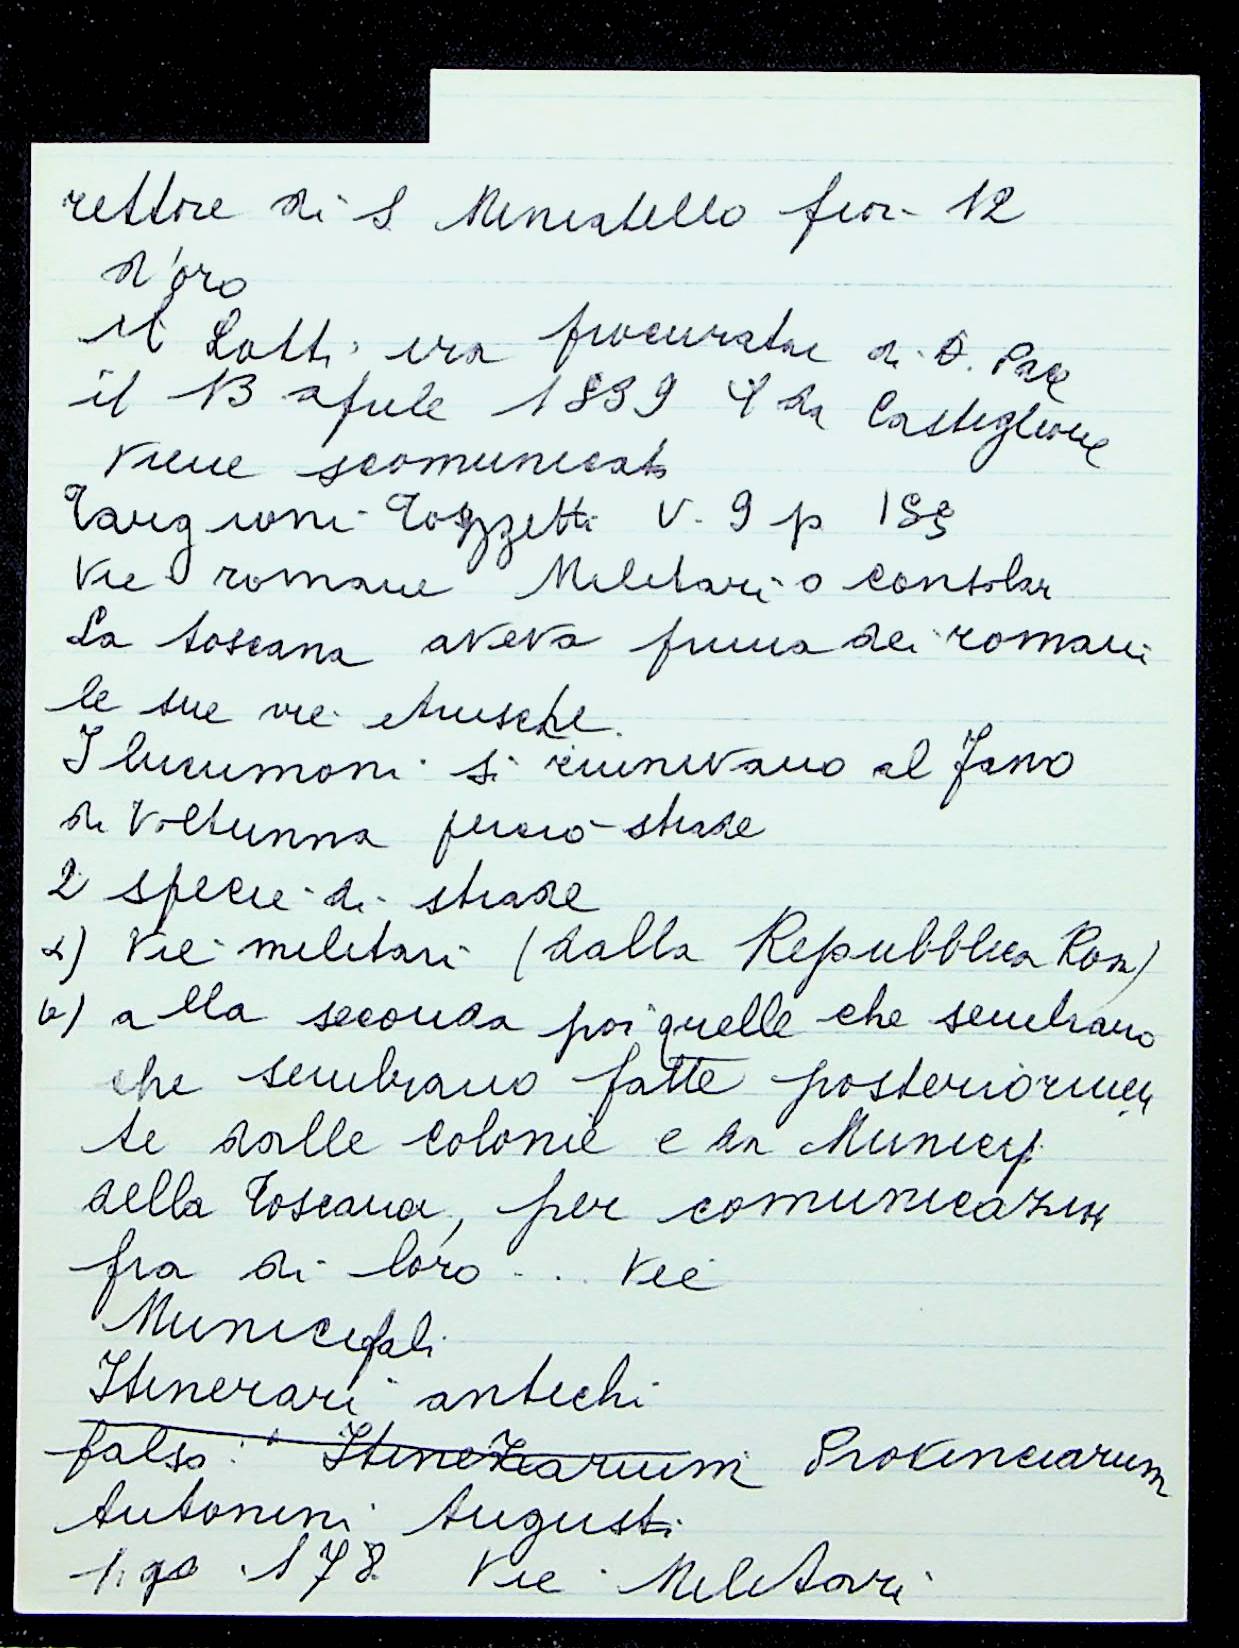 rettore di S. Meniatello fior. 12
d'oro
il Lotti era procurator di D. Pace
il 13 aprile 1339 da Castiglione
viene scomunicato
Targioni-Tozzetti V. 9 p
Vie romane Militari o consolar
La toscana aveva prima dei romani
le sue vie etrusche.
I lucumoni si riunivano al Fano
di Voltunna perciò strade
2 specie di strade
a) Vie militari (dalla Repubblica Rom)
b) alla seconda poi quelle che sembrano
che sembrano fatte posteriormen
te dalle colonie e da Municipi
della Toscana, per comunicazione
fra di loro ... Vie
Municipali
Itinerari antichi
falso: "Itinerarium Provinciarum
Antonini Augusti
178 Vie Militari